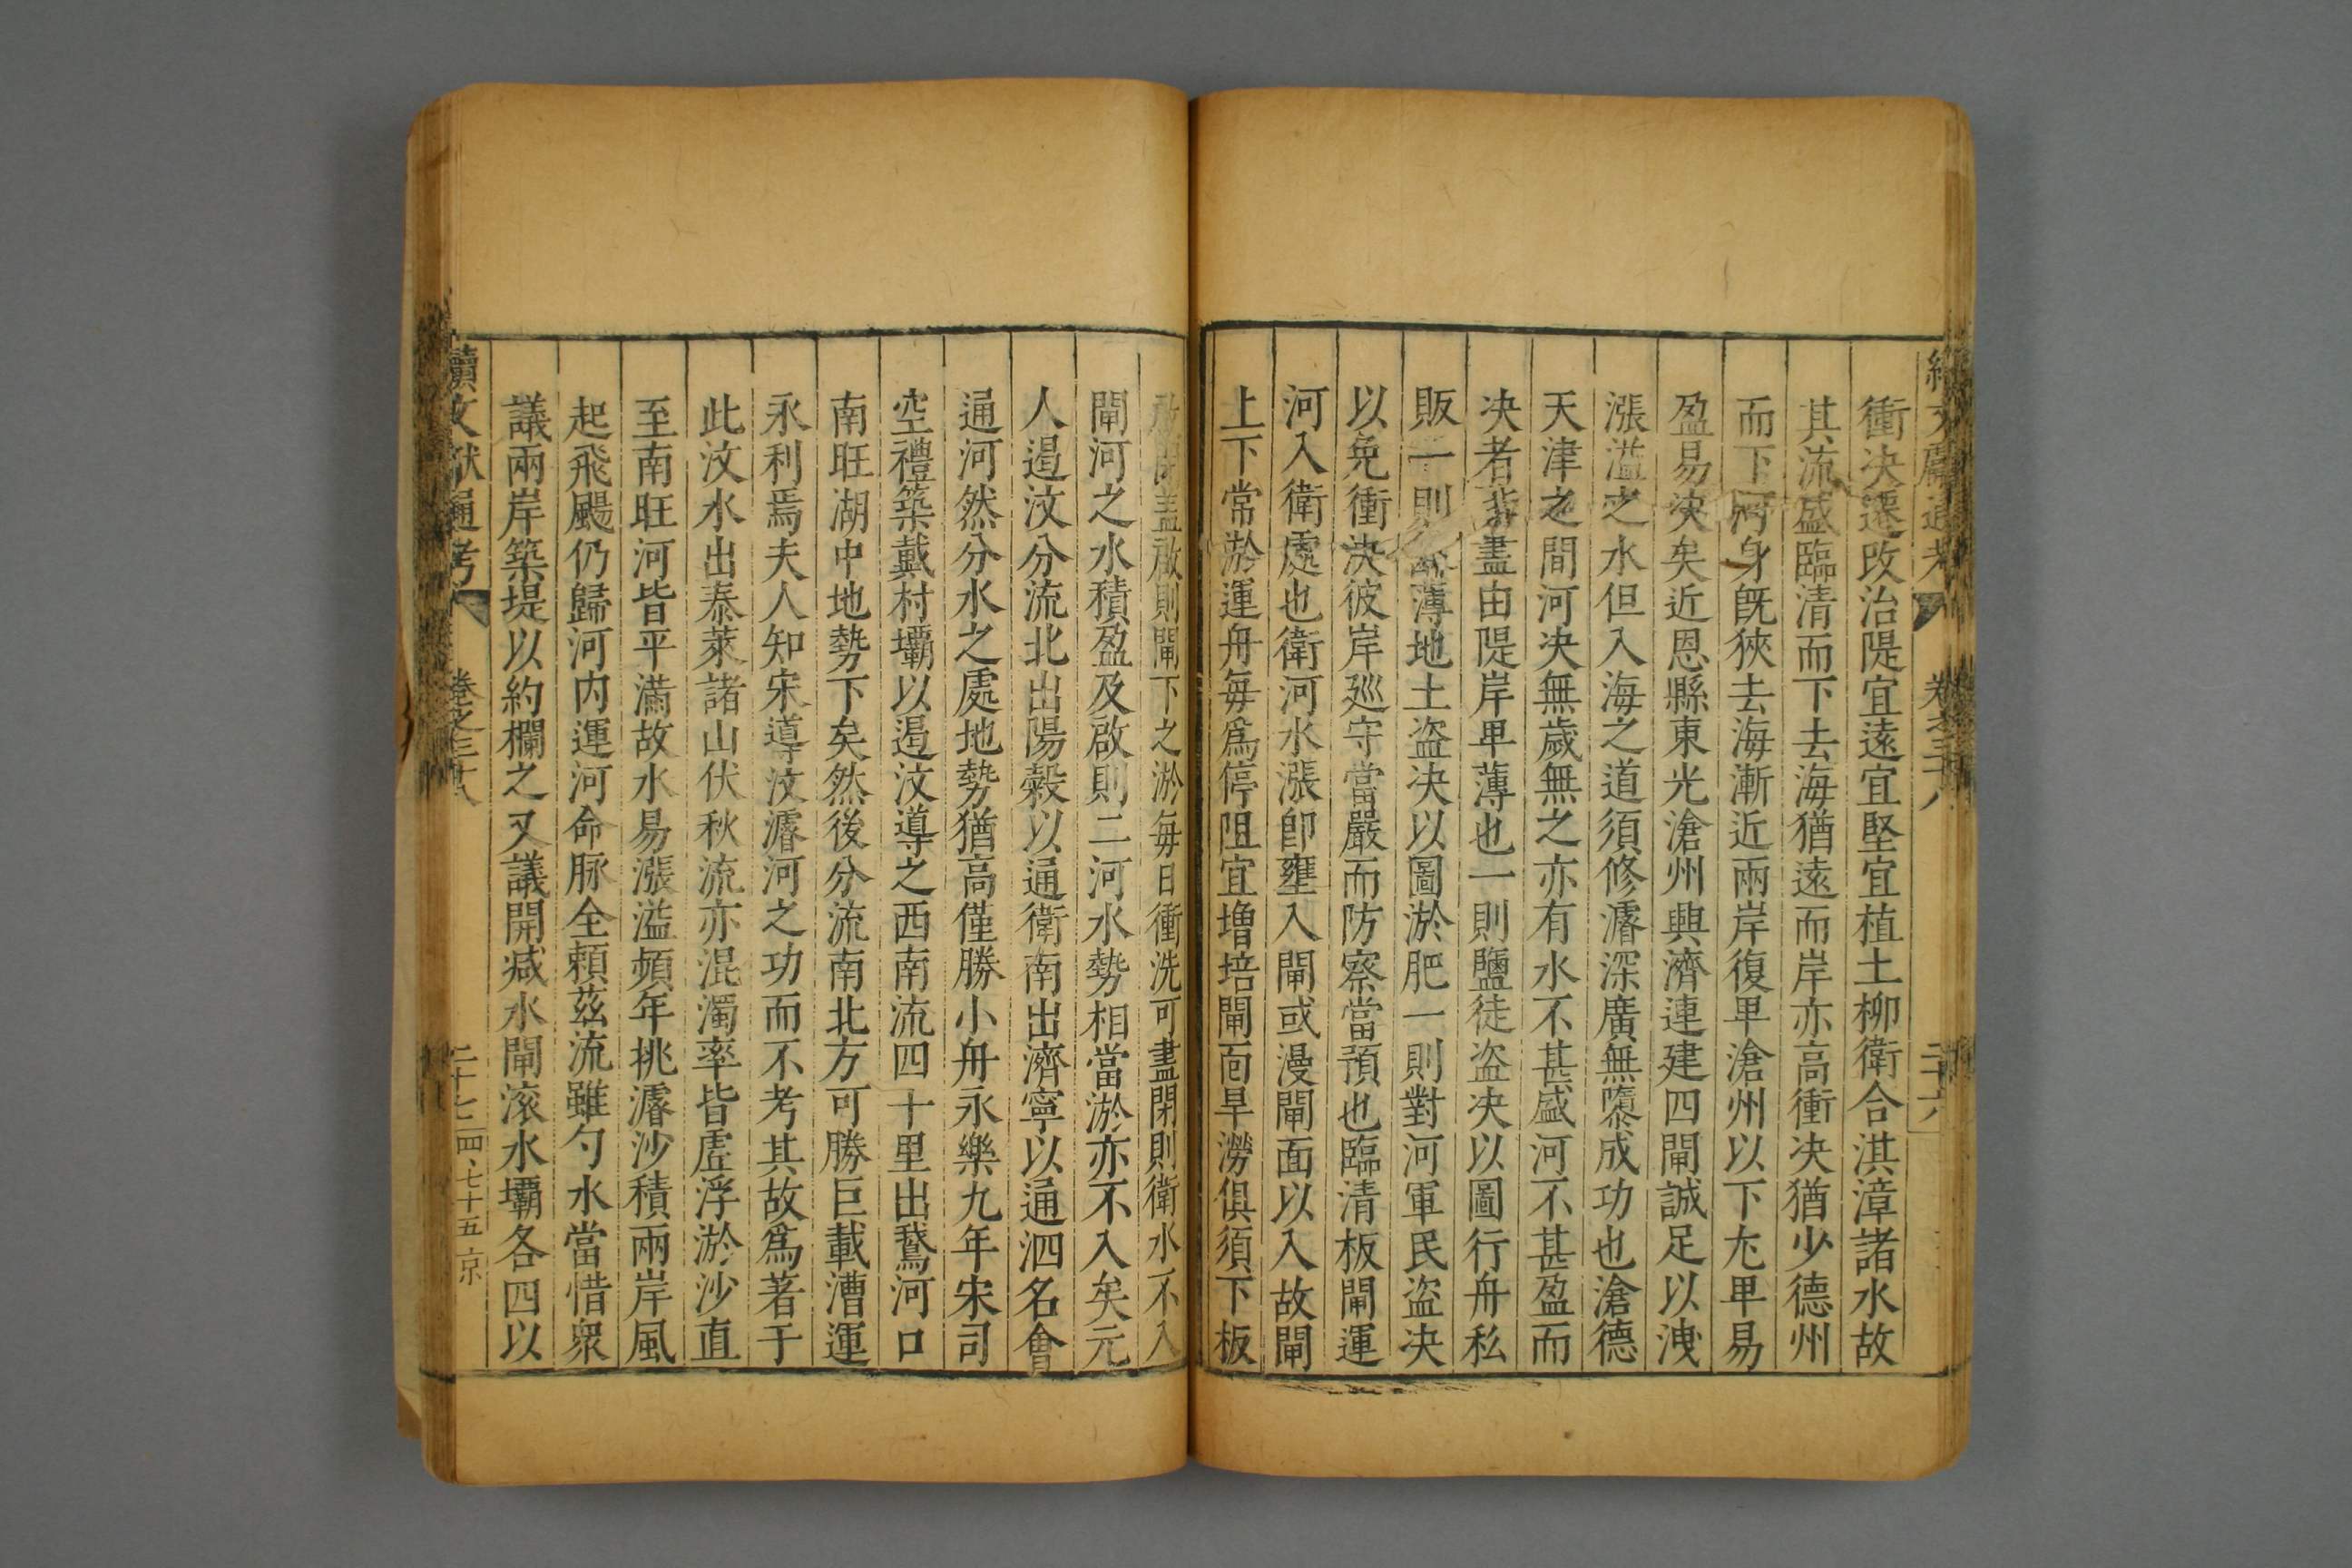 卷之三十八
二十六
衝決遷改治隄宜遠宜堅宜植土柳衛合淇漳諸水故
其流盛臨清而下去海猶遠而岸亦高衝決猶少德州
而下河身旣狹去海漸近兩岸復卑滄州以下尤卑易
盈易決矣近恩縣東光滄州興濟連建四閘誠足以洩
漲溢之水但入海之道須修濬深廣無隳成功也滄德
天津之間河決無歲無之亦有水不甚盛河不甚盈而
決者蓋由隄岸卑薄也一則鹽徒盜決以圖行舟私
販一則薄地土盜決以圖淤肥一則對河軍民盜決
以免衝決彼岸廵守當嚴而防察當預也臨清板閘運
河入衛處也衛河水漲卽壅入閘或漫閘面以入故閘
上下常淤運舟每爲停阻宜增培閘面旱澇俱須下板
啟則閘下之淤每日衝洗可盡閉則衛水不入
閘河之水積盈及啟則二河水勢相當淤亦不入矣元
人遏汶分流北出陽穀以通衛南出濟寧以通泗名會
通河然分水之處地勢猶高僅勝小舟永樂九年宋司
空禮築戴村壩以遏汶導之西南流四十里出鵞河口
南旺湖中地勢下矣然後分流南北方可勝巨載漕運
永利焉夫人知宋導汶濬河之功而不考其故爲著于
此汶水出泰萊諸山伏秋流亦混濁率皆虛浮淤沙直
至南旺河皆平滿故水易漲溢頻年挑濬沙積兩岸風
起飛颺仍歸河内運河命脉全頼茲流雖勺水當惜衆
議兩岸築堤以約欄之又議開减水閘滚水壩各四以
續文獻通考
卷之三十八
二十七
四七十五
京